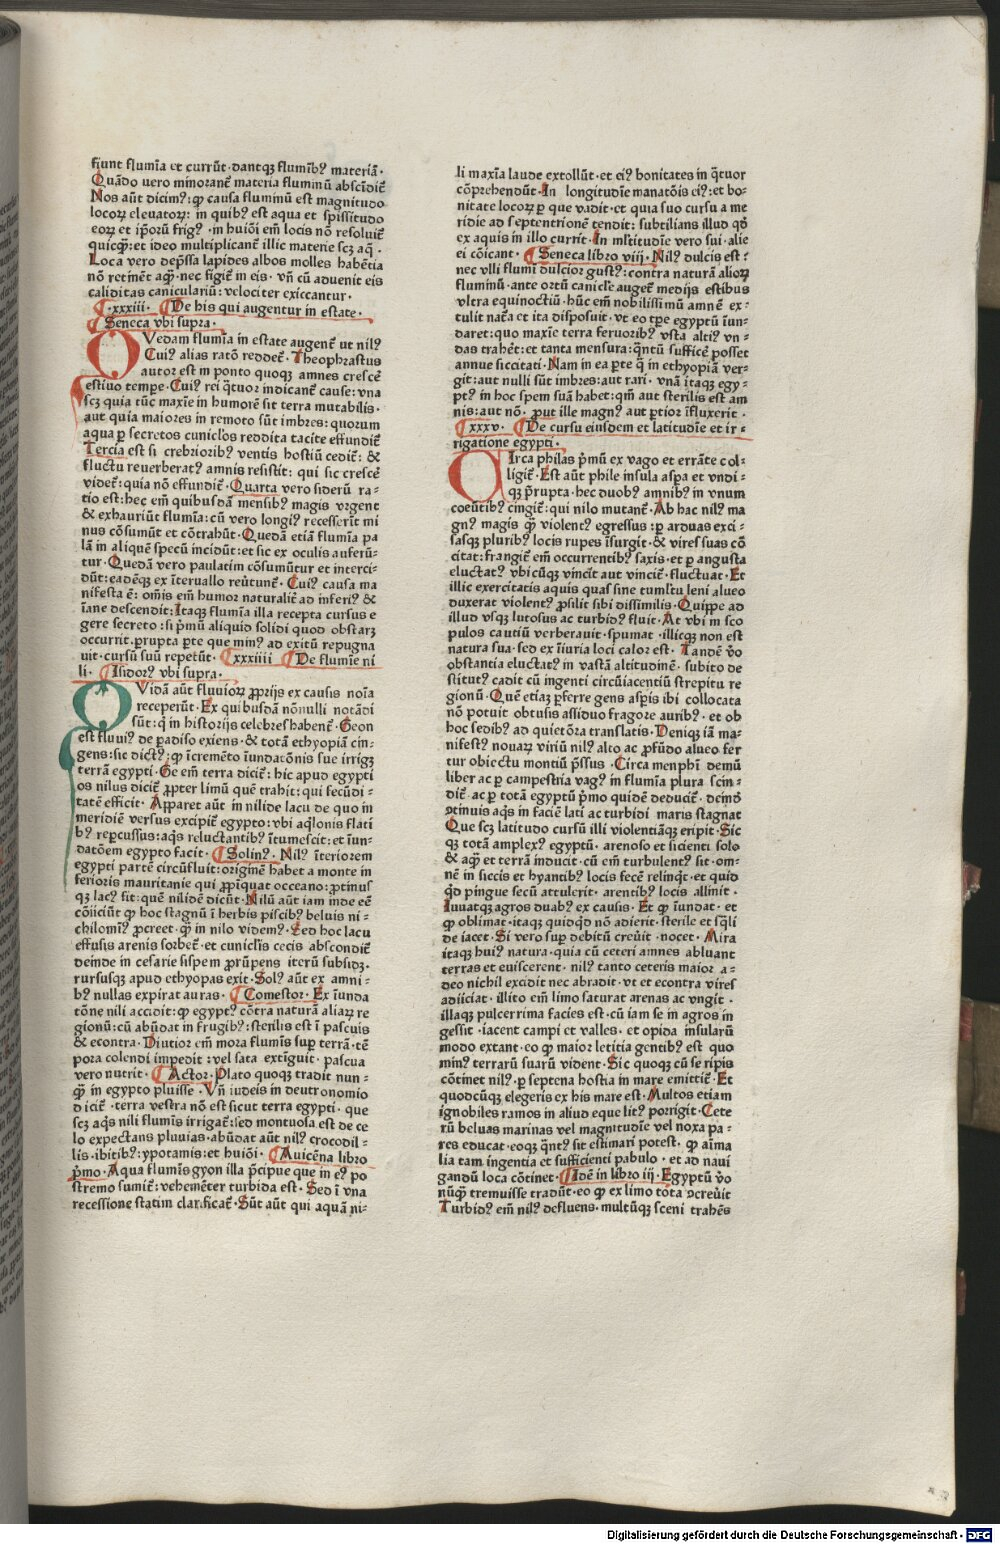 fiunt flumīa et currūt·dantqꝫ flumībꝰ materiā·
Quādo uero minoranĩ materia fluminū abscīdiĩ
Nos aūt dicimꝰ: ꝙ causa fluminū est magnitudo
locoꝝ eleuatoꝝ: in quibꝰ est aqua et spissitudo
eoꝝ et ip̄oꝝ frigꝰ· in huiōi em̄ locis nō resoluiĩ
quicqꝫ: et ideo multiplicanĩ illic materie scꝫ aq̄·
Loca vero dep̄ssa lapides albos molles habētia
nō retinēt aq̄ꝫ·nec figiĩ in eis· vn̄ cū aduenit eis
caliditas caniculariū: velociter exiccantur·
·xxxiii· De his qui augentur in estate·
Seneca vbi supra·
QVedam flumīa in estate augenĩ ut nilꝰ
Cuiꝰ alias ratō reddeĩ·Theophrastus
autor est in ponto quoqꝫ amnes crescē
estiuo tempe·Cuiꝰ rei q̄tuor indicanĩ cause: vna
scꝫ quia tūc maxīe in humorē sit terra mutabilis·
aut quia maiores in remoto sūt imbres: quorum
aqua p secretos cuniclos reddita tacite effundiĩ
Tercia est si crebrioribꝰ ventis hostiū cediĩ: &
fluctu reuerberatꝰ amnis resistit: qui sic crescē
videĩ: quia nō effundiĩ·Quarta vero siderū ra=
tio est: hec em̄ quibusdā mensibꝰ magis vrgent
& exhauriūt flumīa: cū vero longiꝰ recesserīt mi
nus cōsumūt et cōtrahūt·Quedā etiā flumīa pa
lā in aliquē specū incidūt: et sic ex oculis auferū=
tur·Quedā vero paulatim cōsumūtur et interci=
dūt: eadēqꝫ ex īteruallo reūtunĩ·Cuiꝰ causa ma
nifesta ē: om̄is em̄ humor naturaliĩ ad inferiꝰ &
īane descendit: Itaqꝫ flumīa illa recepta cursus e
gere secreto: si pmū aliquid solidi quod obstarꝫ
occurrit·prupta pte que minꝰ ad exitū repugna
uit·cursū suū repetūt· xxxiiii De flumīe ni
li· Isidorꝰ vbi supra·
QVidā aūt fluuioꝝ pprijs ex causis noīa
receperūt·Ex quibusdā nōnulli notādi
sūt: q̄ in historijs celebres habenĩ·Geon
est fluuiꝰ de padiso exiens·& totā ethyopiā cin=
gens: sic dictꝰ: ꝙ īcremēto iūndatōnis sue irrigꝫ
terrā egypti·Ge em̄ terra diciĩ: hic apud egypti
os nilus diciĩ ppter limū quē trahit: qui fecūdi=
tatē efficit· Apparet aūt in nilide lacu de quo in
meridiē versus excipiĩ egypto: vbi aq̄lonis flati
bꝰ repcussus: aq̄s reluctantibꝰ ītumescit: et iūn=
datōem egypto facit· Solinꝰ· Nilꝰ īteriorem
egypti partē circūfluit: originē habet a monte in
ferioris mauritanie qui ppīquat occeano: ptinus
qꝫ lacꝰ fit: quē nilidē dicūt·Nilū aūt iam inde eē
cōijciūt ꝙ hoc stagnū ī herbis piscibꝰ beluis ni=
chilomīꝰ pcreet·ꝙ in nilo videmꝰ·Sed hoc lacu
effusus arenis sorbeĩ·et cuniclis cecis absconditĩ
deinde in cesarie sispem prūpens iterū subsidꝫ·
rursusqꝫ apud ethyopas exit·Solꝰ aūt ex amni=
bꝰ nullas expirat auras· Comestor· Ex īunda
tōne nili accidit: ꝙ egyptꝰ cōtra naturā aliaꝝ re
gionū: cū abūdat in frugibꝰ: sterilis est ī pascuis
& econtra·Diutior em̄ mora flumīs sup terrā·tē
pora colendi impedit: vel sata extīguit·pascua
vero nutrit· Actor·Plato quoqꝫ tradit nun=
q̄ꝫ in egypto pluisse·Vn̄ iudeis in deutronomio
diciĩ·terra vestra nō est sicut terra egypti·que
scꝫ aq̄s nili flumīs irrigaĩ: sed montuosa est de ce
lo expectans pluuias·abūdat aūt nilꝰ crocodil=
lis·ibitibꝰ: ypotamis: et huiōi· Auicēna libro
pmo·Aqua flumīs gyon illa pcipue que in eꝰ po
stremo sumiĩ: vehemēter turbida est·Sed ī vna
recessione statim clarificaĩ·Sūt aūt qui aquā ni=
li maxīa laude extollūt·et eiꝰ bonitates in q̄tuor
cōprehendūt·In longitudīe manatōis eiꝰ: et bo=
nitate locoꝝ p que vadit·et quia suo cursu a me
ridie ad septentrionē tendit: subtilians illud qđ
ex aquis in illo currit·In mltitudīe vero sui·alie
ei cōicant· Seneca libro viij· Nilꝰ dulcis est:
nec vlli flumī dulcior gustꝰ: contra naturā alioꝝ
fluminū·ante ortū canicle augeĩ medijs estibus
vltra equinoctiū·hūc em̄ nobilissimū amnē ex=
tulit nat̄a et ita disposuit·vt eo tpe egyptū iūn=
daret: quo maxīe terra feruoribꝰ vsta altiꝰ vn=
das trahēt: et tanta mensura: q̄ntū sufficē posset
annue siccitati·Nam in ea pte q̄ in ethyopiā ver=
git: aut nulli sūt imbres: aut rari·vnā itaqꝫ egy=
ptꝰ in hoc spem suā habet: qm̄ aut sterilis est am
nis: aut nō·put ille magnꝰ aut ptior īfluxerit·
xxxv· De cursu eiusdem et latitudīe et ir=
rigatione egypti·
CIrca philas pmū ex vago et errāte col=
ligiĩ·Est aūt phile insula aspa et vndi=
qꝫ prupta·hec duobꝰ amnibꝰ in vnum
coeūtibꝰ cīngiĩ: qui nilo mutanĩ·Ab hac nilꝰ ma
gnꝰ magis q̄ violentꝰ egressus: p arduas exci=
sasqꝫ pluribꝰ locis rupes īsurgit·& vires suas cō
citat: frangiĩ em̄ occurrentibꝰ saxis·et p angusta
eluctatꝰ vbicūqꝫ vincit aut vinciĩ·fluctuat·Et
illic exercitatis aquis quas sine tumltu leni alueo
duxerat violentꝰ psilit sibi dissimilis·Quippe ad
illud vsqꝫ lutosus ac turbidꝰ fluit·At vbi in sco
pulos cautiū verberauit·spumat·illicqꝫ non est
natura sua·sed ex īiuria loci calor est· Tandē vo
obstantia eluctatꝰ in vastā altitudinē·subito de
stitutꝰ cadit cū ingenti circūiacentiū strepitu re
gionū·Quē etiaꝫ pferre gens aspis ibi collocata
nō potuit obtusis assiduo fragore auribꝰ·et ob
hoc sedibꝰ ad quietōra translatis·Denique iā ma=
nifestꝰ nouaꝝ viriū nilꝰ alto ac pfūdo alueo fer
tur obiectu montiū pssus·Circa menphī demū
liber ac p campestria vagꝰ in flumīa plura scin=
diĩ·ac p totā egyptū pmo quidē deduciĩ·deīnde
ꝯtinuis aq̄s in faciē lati ac turbidi maris stagnat
Que scꝫ latitudo cursū illi violentiāqꝫ eripit·Sic
qꝫ totā amplexꝰ egyptū·arenoso et sicienti solo
& aq̄ꝫ et terrā inducit·cū em̄ turbulentꝰ sit·om=
nē in siccis et hyantibꝰ locis fecē relinqt·et quid
qd pingue secū attulerit·arentibꝰ locis allinit·
Iuuatqꝫ agros duabꝰ ex causis·Et ꝙ īundat·et
ꝙ oblimat·itaqꝫ quidqd nō adierit·sterile et sqli
de iacet·Si vero sup debitū creuit·nocet·Mira
itaqꝫ huiꝰ natura·quia cū ceteri amnes abluant
terras et euiscerent·nilꝰ tanto ceteris maior a=
deo nichil excidit nec abradit·vt et econtra vires
adijciat·illito em̄ limo saturat arenas ac vngit·
illaqꝫ pulcerrima facies est·cū iam se in agros in
gessit·iacent campi et valles·et opida insularū
modo extant·eo ꝙ maior letitia gentibꝰ est quo
minꝰ terrarū suarū vident·Sic quoqꝫ cū se ripis
cōtinet nilꝰ·p septena hostia in mare emittiĩ·Et
quodcūqꝫ elegeris ex his mare est·Multos etiam
ignobiles ramos in aliud eque litꝰ porrigit·Cete
rū beluas marinas vel magnitudīe vel noxa pa=
res educat·eoqꝫ q̄ntꝰ sit estimari potest·ꝙ aīma
lia tam ingentia et sufficienti pabulo·et ad naui
gandū loca cōtinet· Idē in libro iij·Egyptū vo
nūq̄ꝫ tremuisse tradūt·eo ꝙ ex limo tota ꝯcreuit
Turbidꝰ em̄ nilꝰ defluens·multūqꝫ sceni trahēs
Digitalisierung gefördert durch die Deutsche Forschungsgemeinschaft - DFG